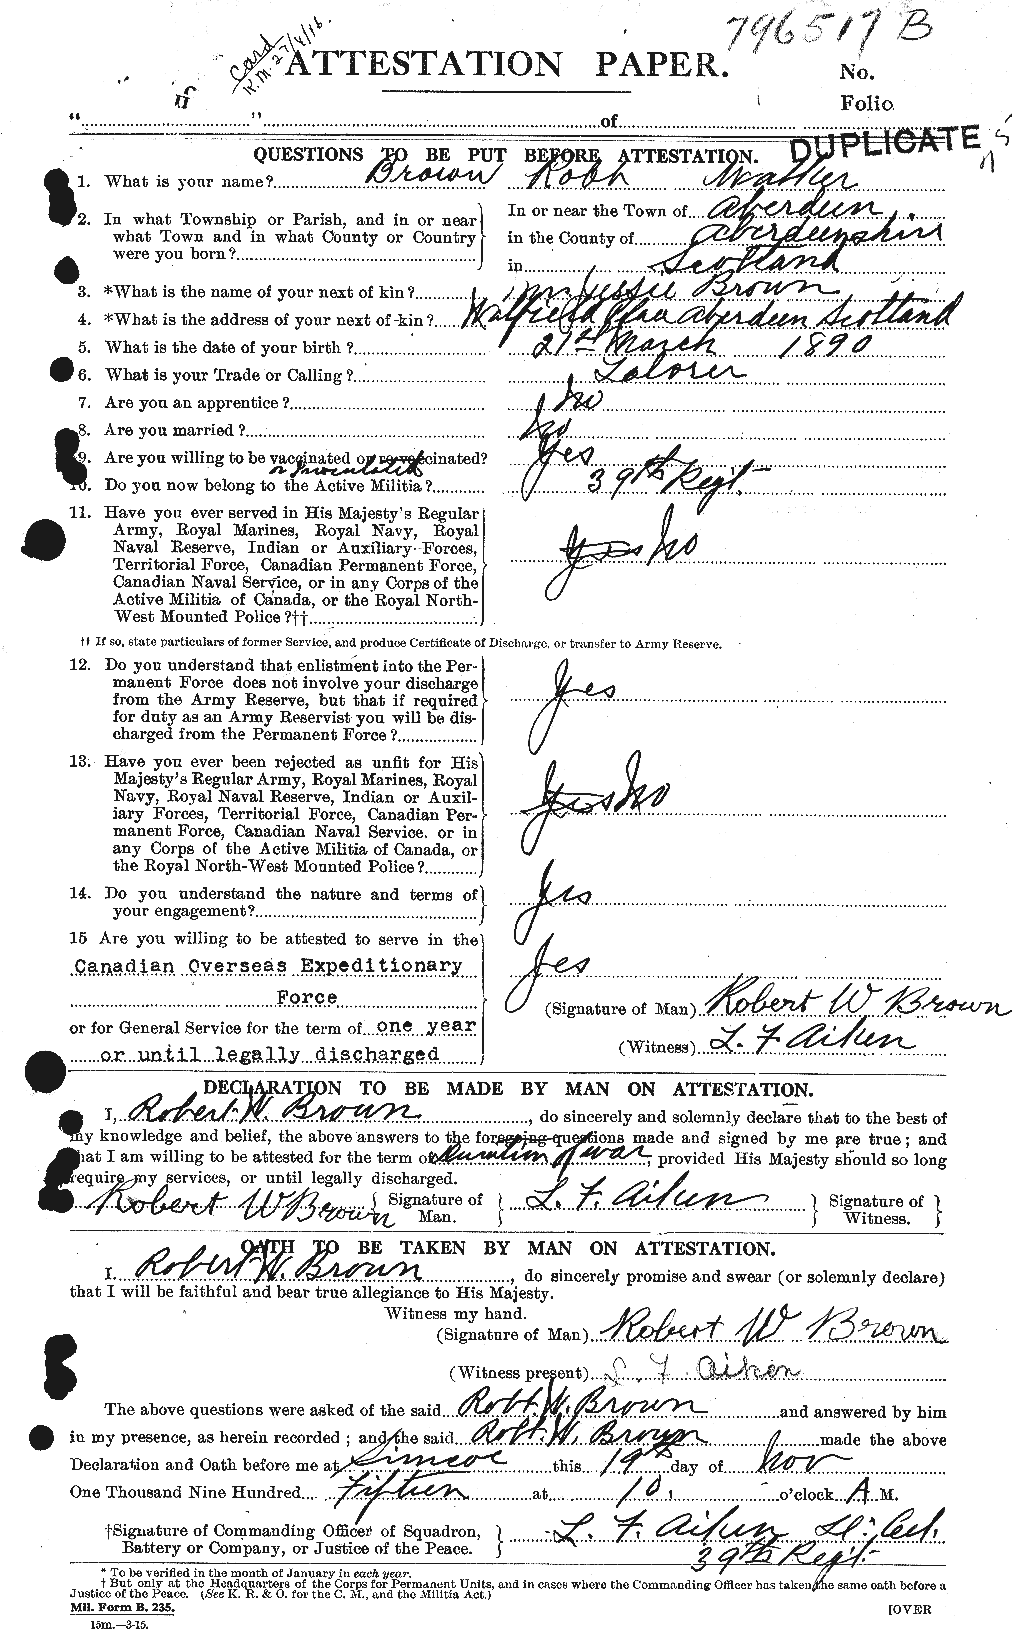 796517 B
Card
R.M. 27/4/16.
ATTESTATION PAPER.
No.
Folio
"..............................".............................. of ..............................
DUPLICATE
QUESTIONS TO BE PUT BEFORE ATTESTATION.
1. What is your name?.......... Brown Robt Walter
2. In what Township or Parish, and in or near what Town and in what County or Country were you born?..........
In or near the Town of Aberdeen
in the County of Aberdeenshire
in Scotland
3. *What is the name of your next of kin?.......... Jessie Brown
4. *What is the address of your next of kin?.......... Aberdeen Scotland
5. What is the date of your birth?.......... 21st March 1890
6. What is your Trade or Calling?.......... Laborer
7. Are you an apprentice?.......... No
8. Are you married?.......... No
9. Are you willing to be vaccinated or re-vaccinated? Yes
or inoculated
10. Do you now belong to the Active Militia?.......... 39th Regt.
11. Have you ever served in His Majesty's Regular
Army, Royal Marines, Royal Navy, Royal
Naval Reserve, Indian or Auxiliary Forces,
Territorial Force, Canadian Permanent Force,
Canadian Naval Service, or in any Corps of the
Active Militia of Canada, or the Royal North-
West Mounted Police?††.......... Yes No
†† If so, state particulars of former Service, and produce Certificate of Discharge, or transfer to Army Reserve.
12. Do you understand that enlistment into the Per-
manent Force does not involve your discharge
from the Army Reserve, but that if required
for duty as an Army Reservist you will be dis-
charged from the Permanent Force?.......... Yes
13. Have you ever been rejected as unfit for His
Majesty's Regular Army, Royal Marines, Royal
Navy, Royal Naval Reserve, Indian or Auxil-
iary Forces, Territorial Force, Canadian Per-
manent Force, Canadian Naval Service. or in
any Corps of the Active Militia of Canada, or
the Royal North-West Mounted Police?.......... Yes No
14. Do you understand the nature and terms of
your engagement?.......... Yes
15 Are you willing to be attested to serve in the
Canadian Overseas Expeditionary Yes
Force
(Signature of Man) Robert W Brown
or for General Service for the term of one year
(Witness) L. F Aiken
or until legally discharged
DECLARATION TO BE MADE BY MAN ON ATTESTATION.
I, Robert W. Brown, do sincerely and solemnly declare that to the best of
my knowledge and belief, the above answers to the foregoing questions made and signed by me are true; and
that I am willing to be attested for the term of duration of war, provided His Majesty should so long
require my services, or until legally discharged.
Robert W Brown { Signature of Man. } L. F. Aiken { Signature of Witness. }
OATH TO BE TAKEN BY MAN ON ATTESTATION.
I, Robert W. Brown, do sincerely promise and swear (or solemnly declare)
that I will be faithful and bear true allegiance to His Majesty.
Witness my hand.
(Signature of Man) Robert W Brown
(Witness present) L. F Aiken
The above questions were asked of the said Robt. W. Brown and answered by him
in my presence, as herein recorded; and the said Robt. W. Brown made the above
Declaration and Oath before me at Simcoe this 19th day of Nov
One Thousand Nine Hundred Fifteen at 10 o'clock A M.
†Signature of Commanding Officer of Squadron,
Battery or Company, or Justice of the Peace.
L. F. Aiken Lt. Col.
39th Regt
* To be verified in the month of January in each year.
† But only at the Headquarters of the Corps for Permanent Units, and in cases where the Commanding Officer has taken the same oath before a
Justice of the Peace. (See K. R. & O. for the C. M., and the Militia Act.)
Mil. Form B. 235.
15m.—3-15.
[OVER